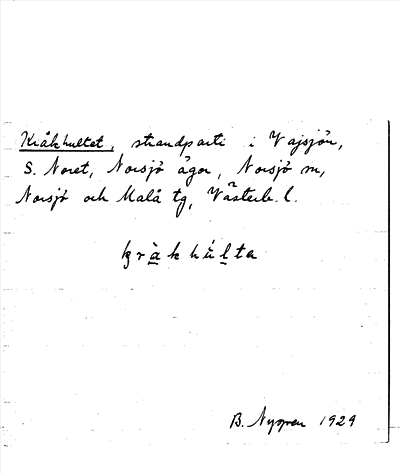 Kråkhultet, strandparti i Vajsjön,
S. Noret, Norsjö ägor, Norsjö sn,
Norsjö och Malå tg, Västerb. l.
kràkhúlta
B. Nygren 1929